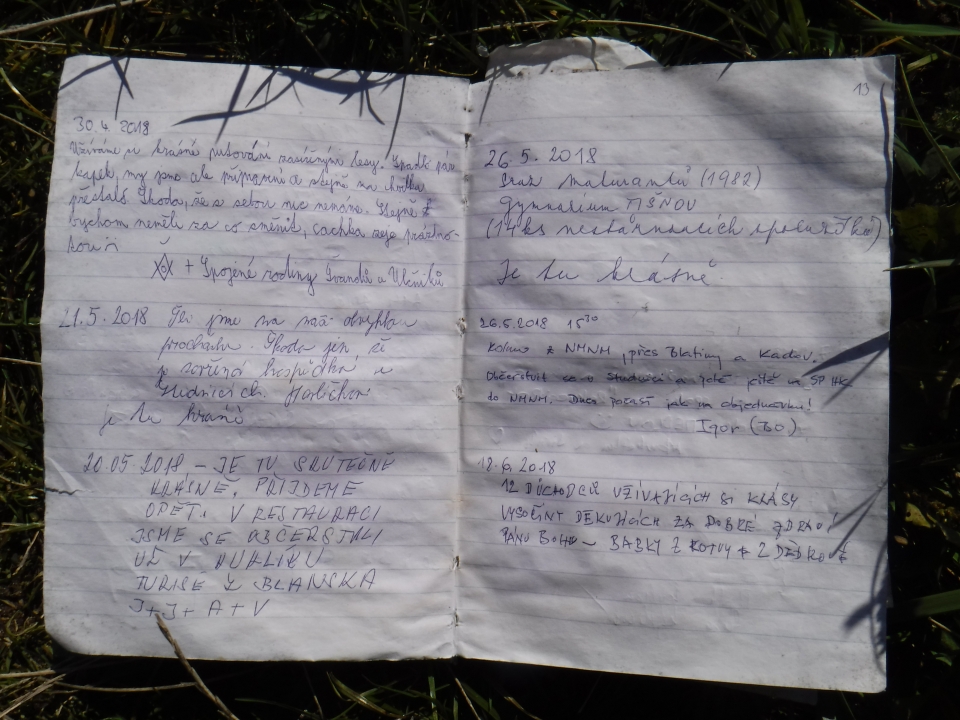 30.4. 2018
Užíváme si krásné putování zasněným lesy. Spadlo pár
kapek, my jsme ale připraveni a stejně za chvilku
přestalo. Škoda, že s sebou nic nemáme. Stejně
bychom neměli za co směnit, cachka zeje prázdno-
tou
+ Spojené rodiny Švandů a Vlčníků
21.5.2018 Šli jsme na naši obvyklou
procházku. Škoda jen že
je zavřená hospůdka v
je tu krásně
20.05.2018 – JE TU SKUTEČNĚ
KRÁSNĚ. PŘIJDEME
OPĚT. V RESTAURACI
JSME SE OBČERSTVILI
UŽ V
TURISÉ Z BLANSKA
J+J+ A+V
13
26.5. 2018
Sraz maturantů (1982)
Gymnasium TIŠNOV
(14 ks nestárnoucích spolužáků)
Je tu krásně.
26.5.2018 15³⁰
Kolmo z NMNM, přes Blatiny a Kadov.
Občerstvit se u Studnice a ještě na SP HK
do NMNM. Dnes počasí jak na objednávku!
Igor (BO)
12 DŮCHODCŮ UŽÍVAJÍCÍCH SI KRÁSY
VYSOČINY DĚKUJÍCÍCH ZA DOBRÉ ZDRAVÍ
PÁNU BOHU – BABKY Z ROTVY + 2 DĚDKOVÉ